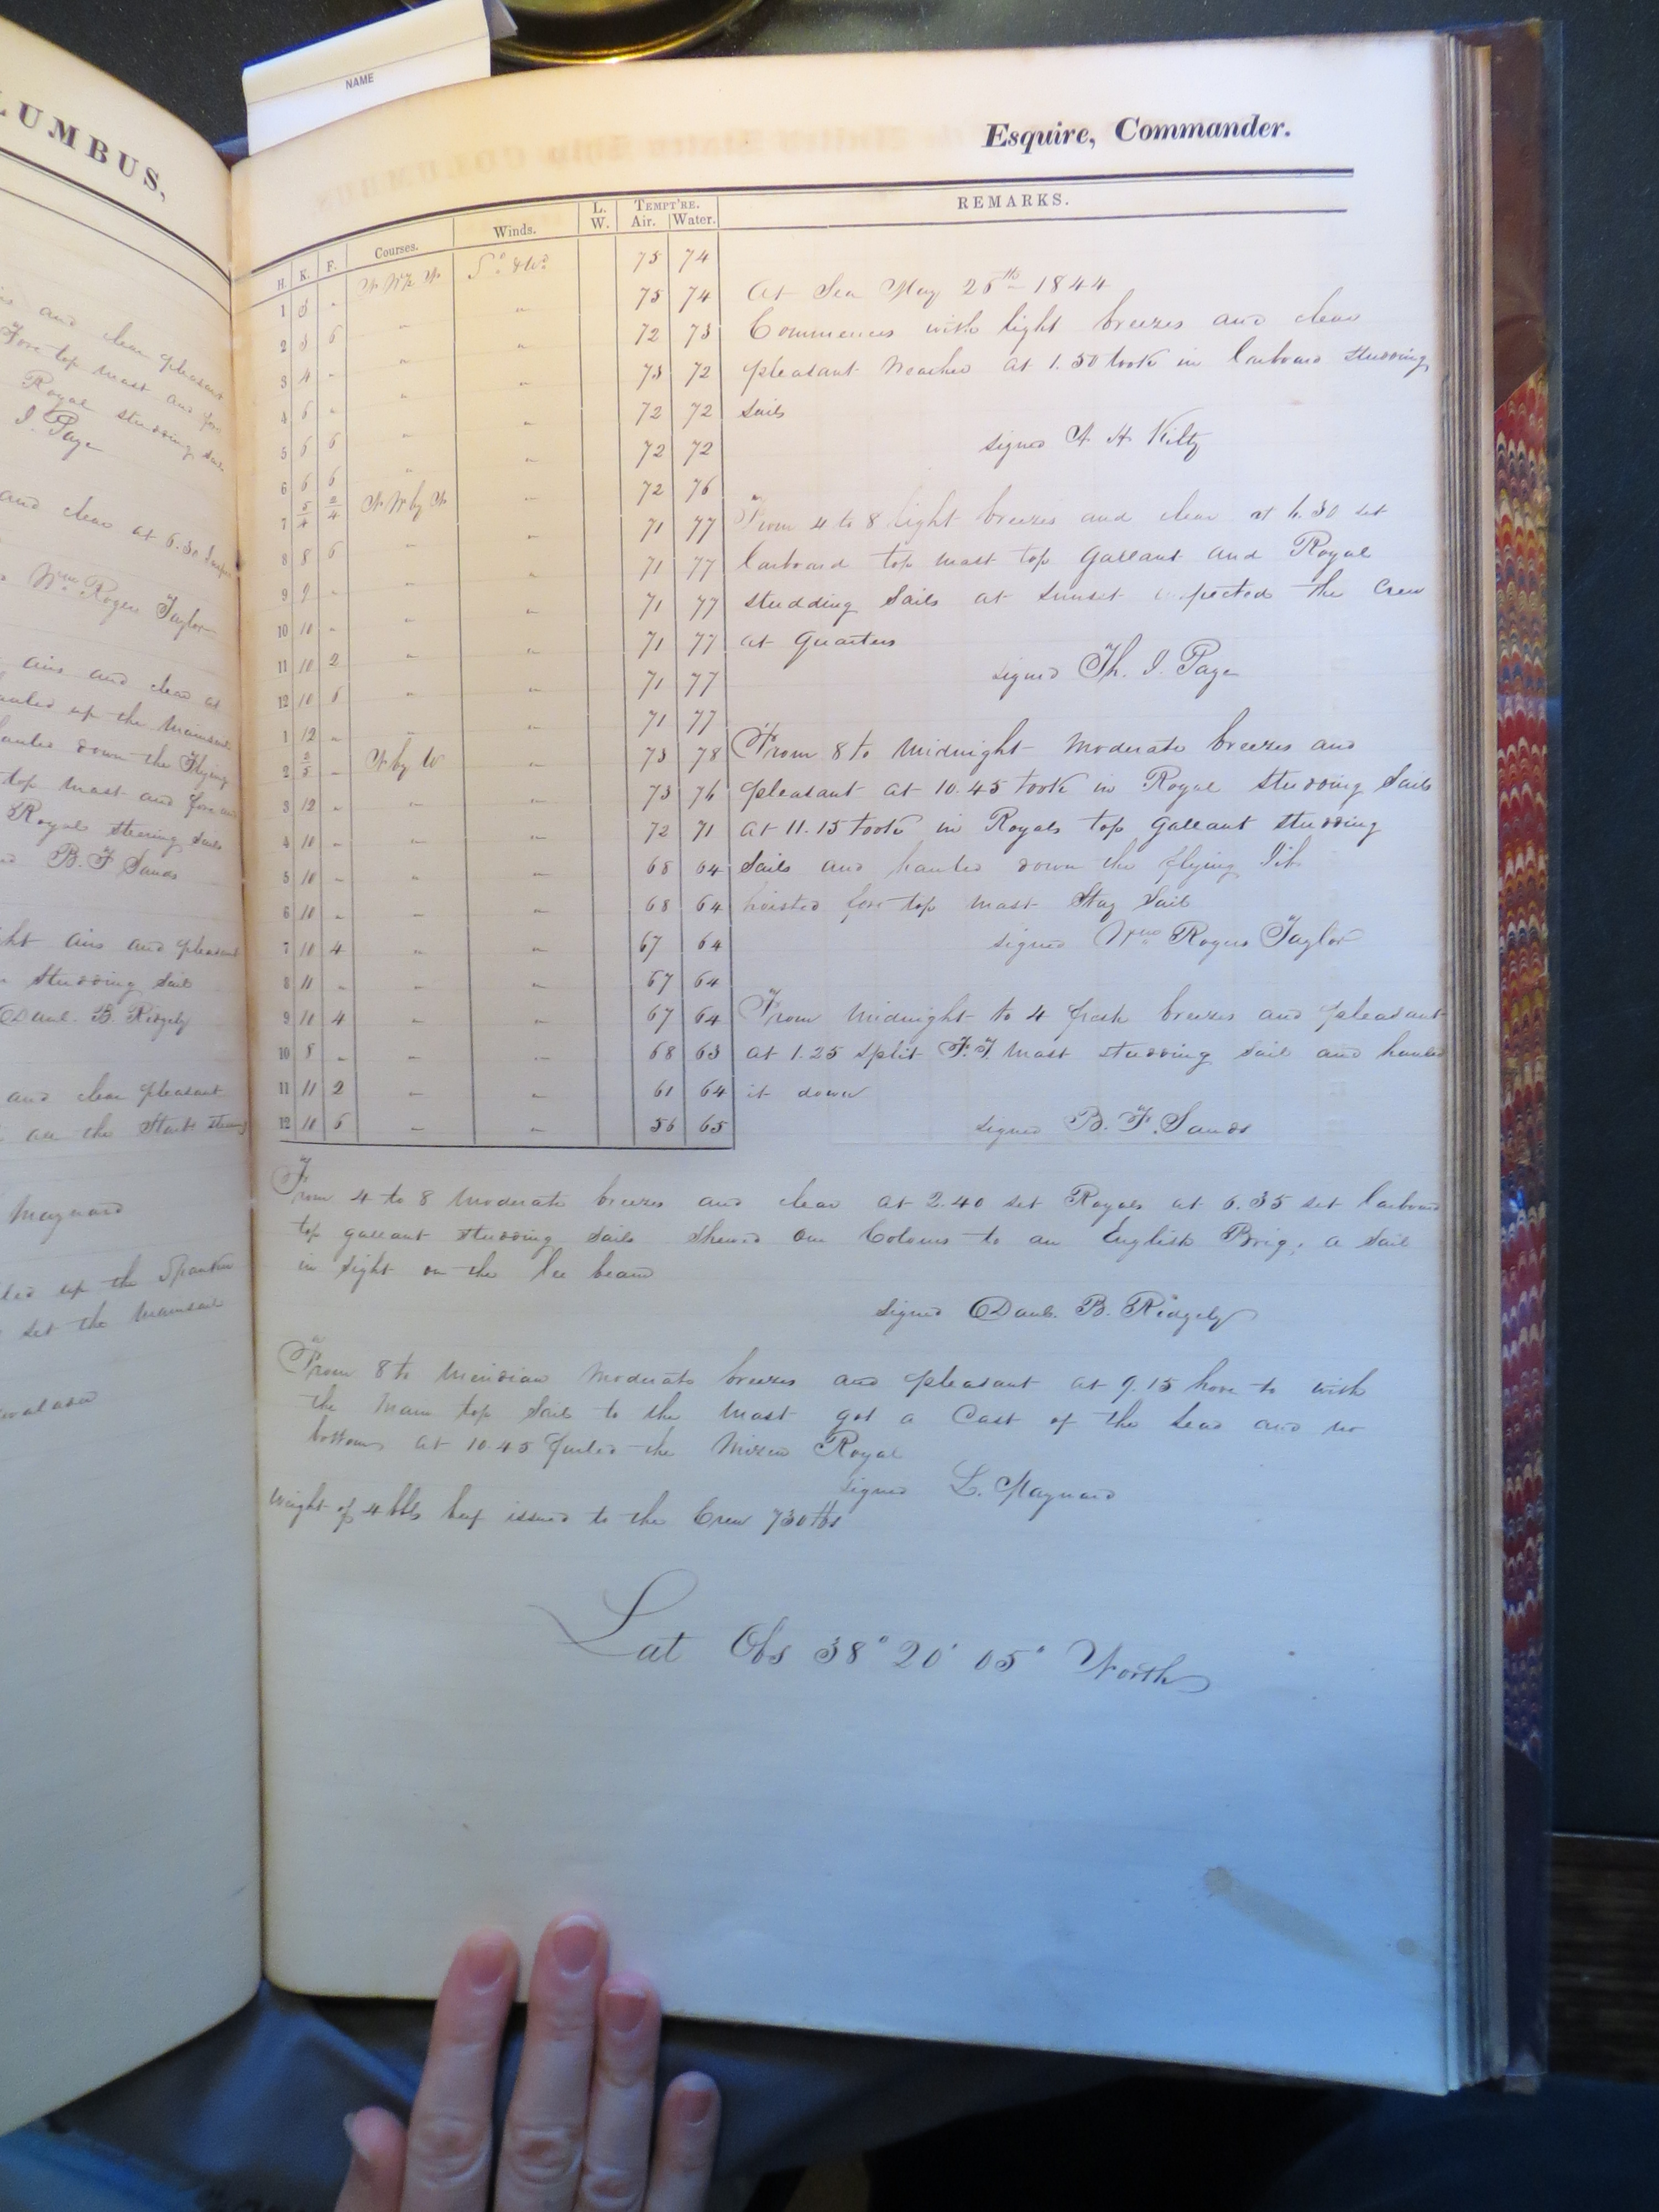 NAME
LUMBUS,
and clear pleasant
Fore top mast and
Royal studding sails
J. Page
and clear at 6.30
Wm. Rogers Taylor
airs and clear at
hauled up the mainsail
hauled down the Flying
top mast and fore
Royal steering sails
B. F Sands
airs and pleasant
studding sail
Danl. B. Ridgely
and clear pleasant
all the Starb
Maynard
up the Spanker
set the mainsail
Esquire, Commander.
H. K. F. Courses. Winds. L. W. TEMPT'RE. Air. Water. REMARKS.
1 So. & Wd. 75 74
2 " " 75 74
3 4 " " 72 73
4 " " 73 72
5 " " 72 72
6 " " 72 72
7 N W by N " 72 76
8 8 6 " " 71 77
9 9 " " " 71 77
10 10 " " " 71 77
11 10 2 " " 71 77
12 10 6 " " 71 77
1 12 " " " 71 77
2 N by W " 73 78
3 12 " " " 73 76
4 10 " " " 72 71
5 10 " " " 68 64
6 10 " " " 68 64
7 10 4 " " 67 64
8 11 " " " 67 64
9 11 4 " " 67 64
10 8 " " " 68 63
11 11 2 " " 61 64
12 10 6 " " 56 65
At Sea May 25th 1844
Commences with light breezes and clear
pleasant weather at 1.50 took in larboard studding
sails
signed A H Kilty
From 4 to 8 light breezes and clear at 4.30 set
larboard top mast top gallant and Royal
studding sails at sunset inspected the crew
at quarters
signed Th. J. Page
From 8 to midnight moderate breezes and
pleasant at 10.45 took in Royal studding sails
at 11.15 took in Royals top gallant studding
sails and hauled down the flying Jib
hoisted fore top mast stay sail
signed Wm Rogers Taylor
From midnight to 4 fresh breezes and pleasant
at 1.25 split F. T mast studding sail and hauled
it down
signed B. F. Sands
From 4 to 8 moderate breezes and clear at 2.40 set Royals at 6.35 set larboard
top gallant studding sails shewed our Colours to an English Brig, a sail
in sight on the lee beam
signed Danl. B. Ridgely
From 8 to meridian moderate breezes and pleasant at 9.15 hove to with
the main top sail to the mast got a cast of the lead and no
bottom at 10.45 furled the mizen Royal
signed L. Maynard
Weight of 4 bbls beef issued to the Crew 730 lbs
Lat Obs 38° 20' 05" North